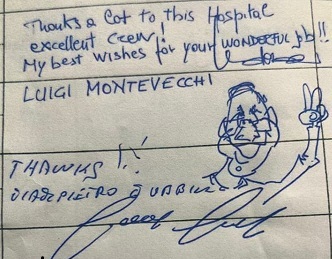 Thanks a lot to this Hospital
excellent Crew!
My best wishes for your WONDERFUL job!!
LUIGI MONTEVECCHI
THANKS !!